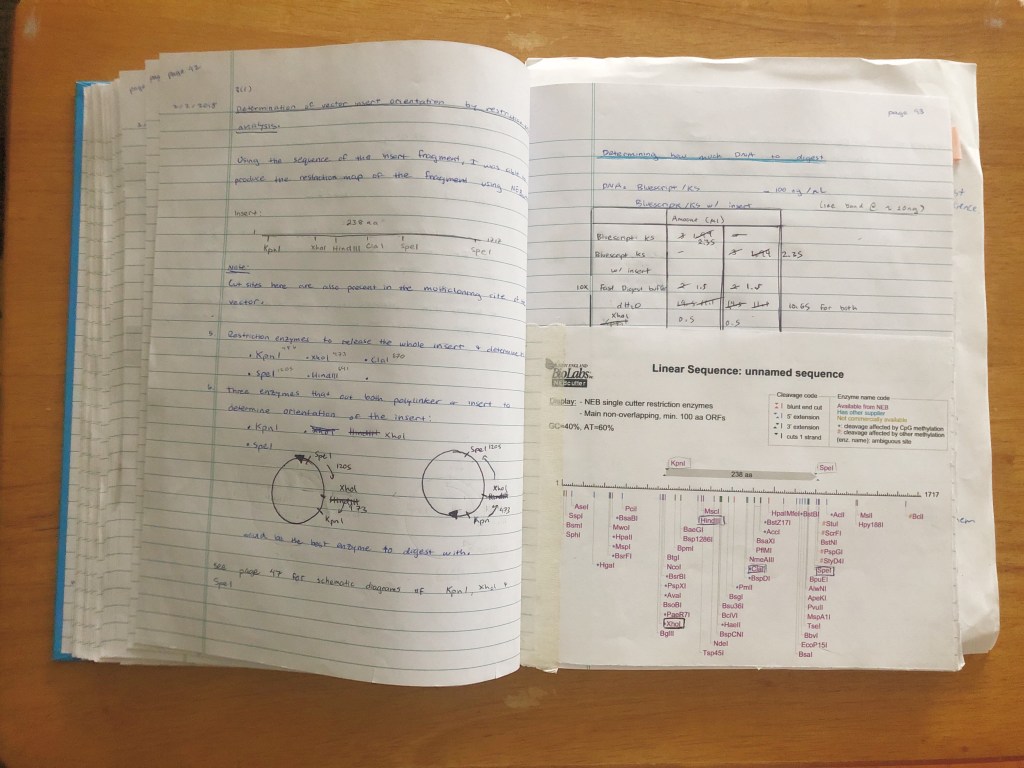 page 42
21/2/2018
Determination of vector insert orientation by restriction
analysis.
Using the sequence of the insert fragment, I was able
produce the restriction map of the fragment using NEB
Insert:
238 aa
1 1717
KpnI XhoI HindIII ClaI SpeI SpeI
Note:
Cut sites here are also present in the multicloning site of the
vector.
Restriction enzymes to release the whole insert & determine
• KpnI • XhoI 473 • ClaI
• SpeI • HindIII
b. Three enzymes that cut both polylinker & insert to
determine orientation of the insert:
• KpnI • XhoI HindIII XhoI
• SpeI
SpeI
1205
XhoI
HindIII
473
KpnI
SpeI 1205
XhoI
HindIII
473
Kpn
would be the best enzyme to digest with.
See page 47 for schematic diagrams of KpnI, XhoI &
SpeI
page 43
Determining how much DNA to digest
DNA: Bluescript/KS - 100 ng/µL
Bluescript/KS w/ insert
Amount (µl)
Bluescript KS 2.35 -
Bluescript KS - 2.35
w/ insert
10x Fast Digest buffer 2 1.5 2 1.5
dH2O 10.65 for both
XhoI 0.5 0.5
NEW ENGLAND
BioLabs Inc
NEBcutter
Linear Sequence: unnamed sequence
Display: - NEB single cutter restriction enzymes
- Main non-overlapping, min. 100 aa ORFs
GC=40%, AT=60%
Cleavage code
blunt end cut
5' extension
3' extension
cuts 1 strand
Enzyme name code
Available from NEB
Has other supplier
Not commercially available
*: cleavage affected by CpG methylation
#: cleavage affected by other methylation
(enz. name): ambiguous site
KpnI SpeI
238 aa
1 1717
AseI
SspI
BsmI
SphI
*HgaI
PciI
*BsaBI
MwoI
*HpaII
*MspI
*BsrFI
BtgI
NcoI
*BsrBI
*PspXI
*AvaI
BsoBI
*PaeR7I
*XhoI
BglII
BaeGI
Bsp1286I
BpmI
MscI
HindIII
*PmlI
BsgI
Bsu36I
BciVI
*HaeII
BspCNI
NdeI
Tsp45I
HpaI
MfeI
*BstBI
*BstZ17I
*AccI
BsaXI
PflMI
NmeAIII
*ClaI
*BspDI
*AciI
#StuI
#ScrFI
BstNI
#PspGI
#StyD4I
SpeI
BpuEI
AlwNI
ApeKI
PvuII
MspA1I
TseI
BbvI
EcoP15I
BsaI
MslI
Hpy188I
#BclI